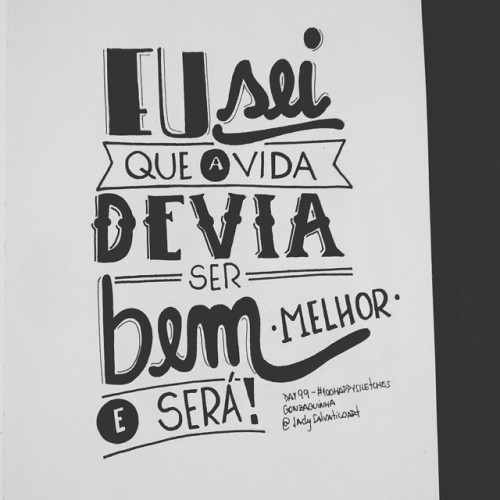 EU sei
QUE A VIDA
DEVIA
SER
bem
·MELHOR·
E SERÁ!
DAY 99 - #100HAPPYSKETCHES
GONZAGUINHA